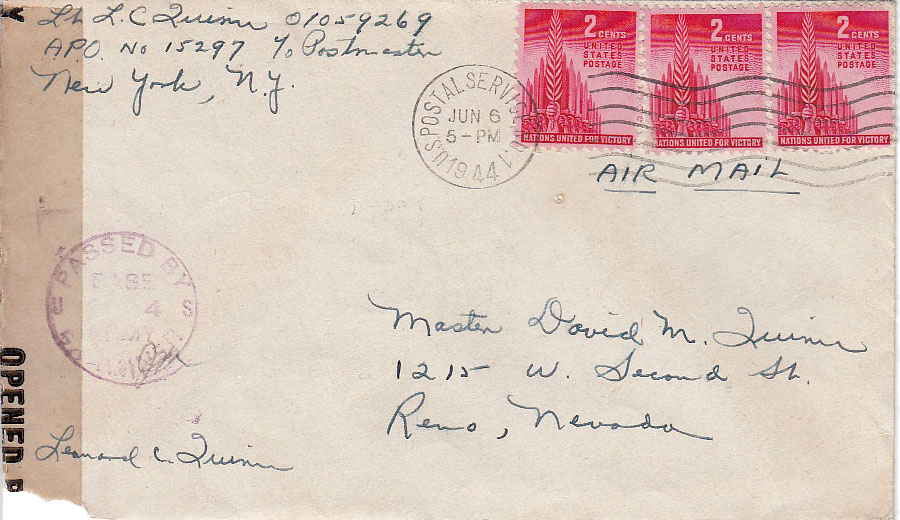 Lt. L. C. Quinn 01059269
A.P.O. No 15297 c/o Postmaster
New York, N.Y.
2 CENTS
UNITED
STATES
POSTAGE
NATIONS UNITED FOR VICTORY
2 CENTS
UNITED
STATES
POSTAGE
NATIONS UNITED FOR VICTORY
2 CENTS
UNITED
STATES
POSTAGE
NATIONS UNITED FOR VICTORY
U.S. POSTAL SERVICE
JUN 6
5-PM
1944
AIR MAIL
PASSED BY
BASE
4
ARMY
OPENED
Master David M. Quinn
1215 W. Second St.
Reno, Nevada
Leonard C. Quinn